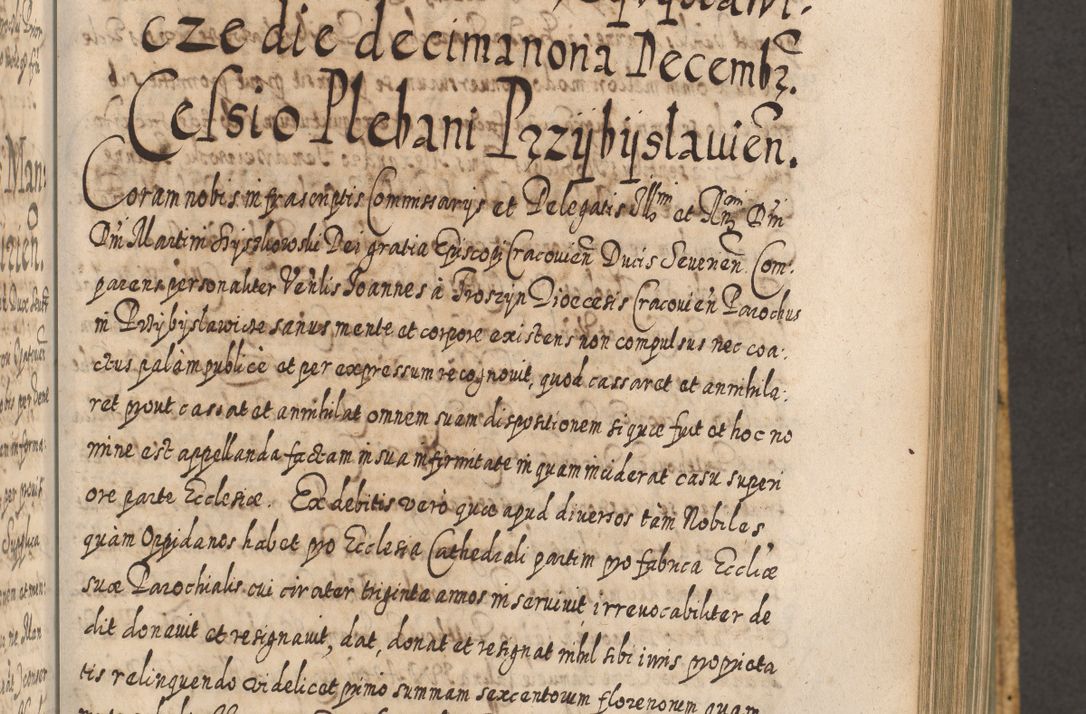 cze die decimanona Decembr.
Celsio Plebani Przÿbÿslauien.
Coram nobis infrascriptis Commissarijs et Delegatis Illmi et Rmi Dni
Dni Martini Szyszkowski Dei gratia Episcopi Cracouien Ducis Seueren. Com:
parens personaliter Venlis Joannes à Troszyn Dioecesis Cracouien Parochus
in Przÿbÿslawicze sanus mente et corpore existens non compulsus nec coa:
ctus palàm publicè et per expressum recognouit, quod cassaret et annihila:
ret prout cassat et annihilat omnem suam dispositionem si quæ fuit et hoc no
mine est appellanda factam in sua infirmitate in quam inciderat casu superi
ore parte Ecclesiæ. Ex debitis verò quæ apud diuersos tàm Nobiles
quàm Oppidanos habet pro Ecclesia Cathedrali partim pro fabrica Eccliæ
suæ Parochialis cui circiter triginta annos inseruiuit irreuocabiliter de
dit donauit et resignauit, dat, donat et resignat nihil sibi iuris proprieta
tis relinquendo videlicet primo summam sexcentorum florenorum quam